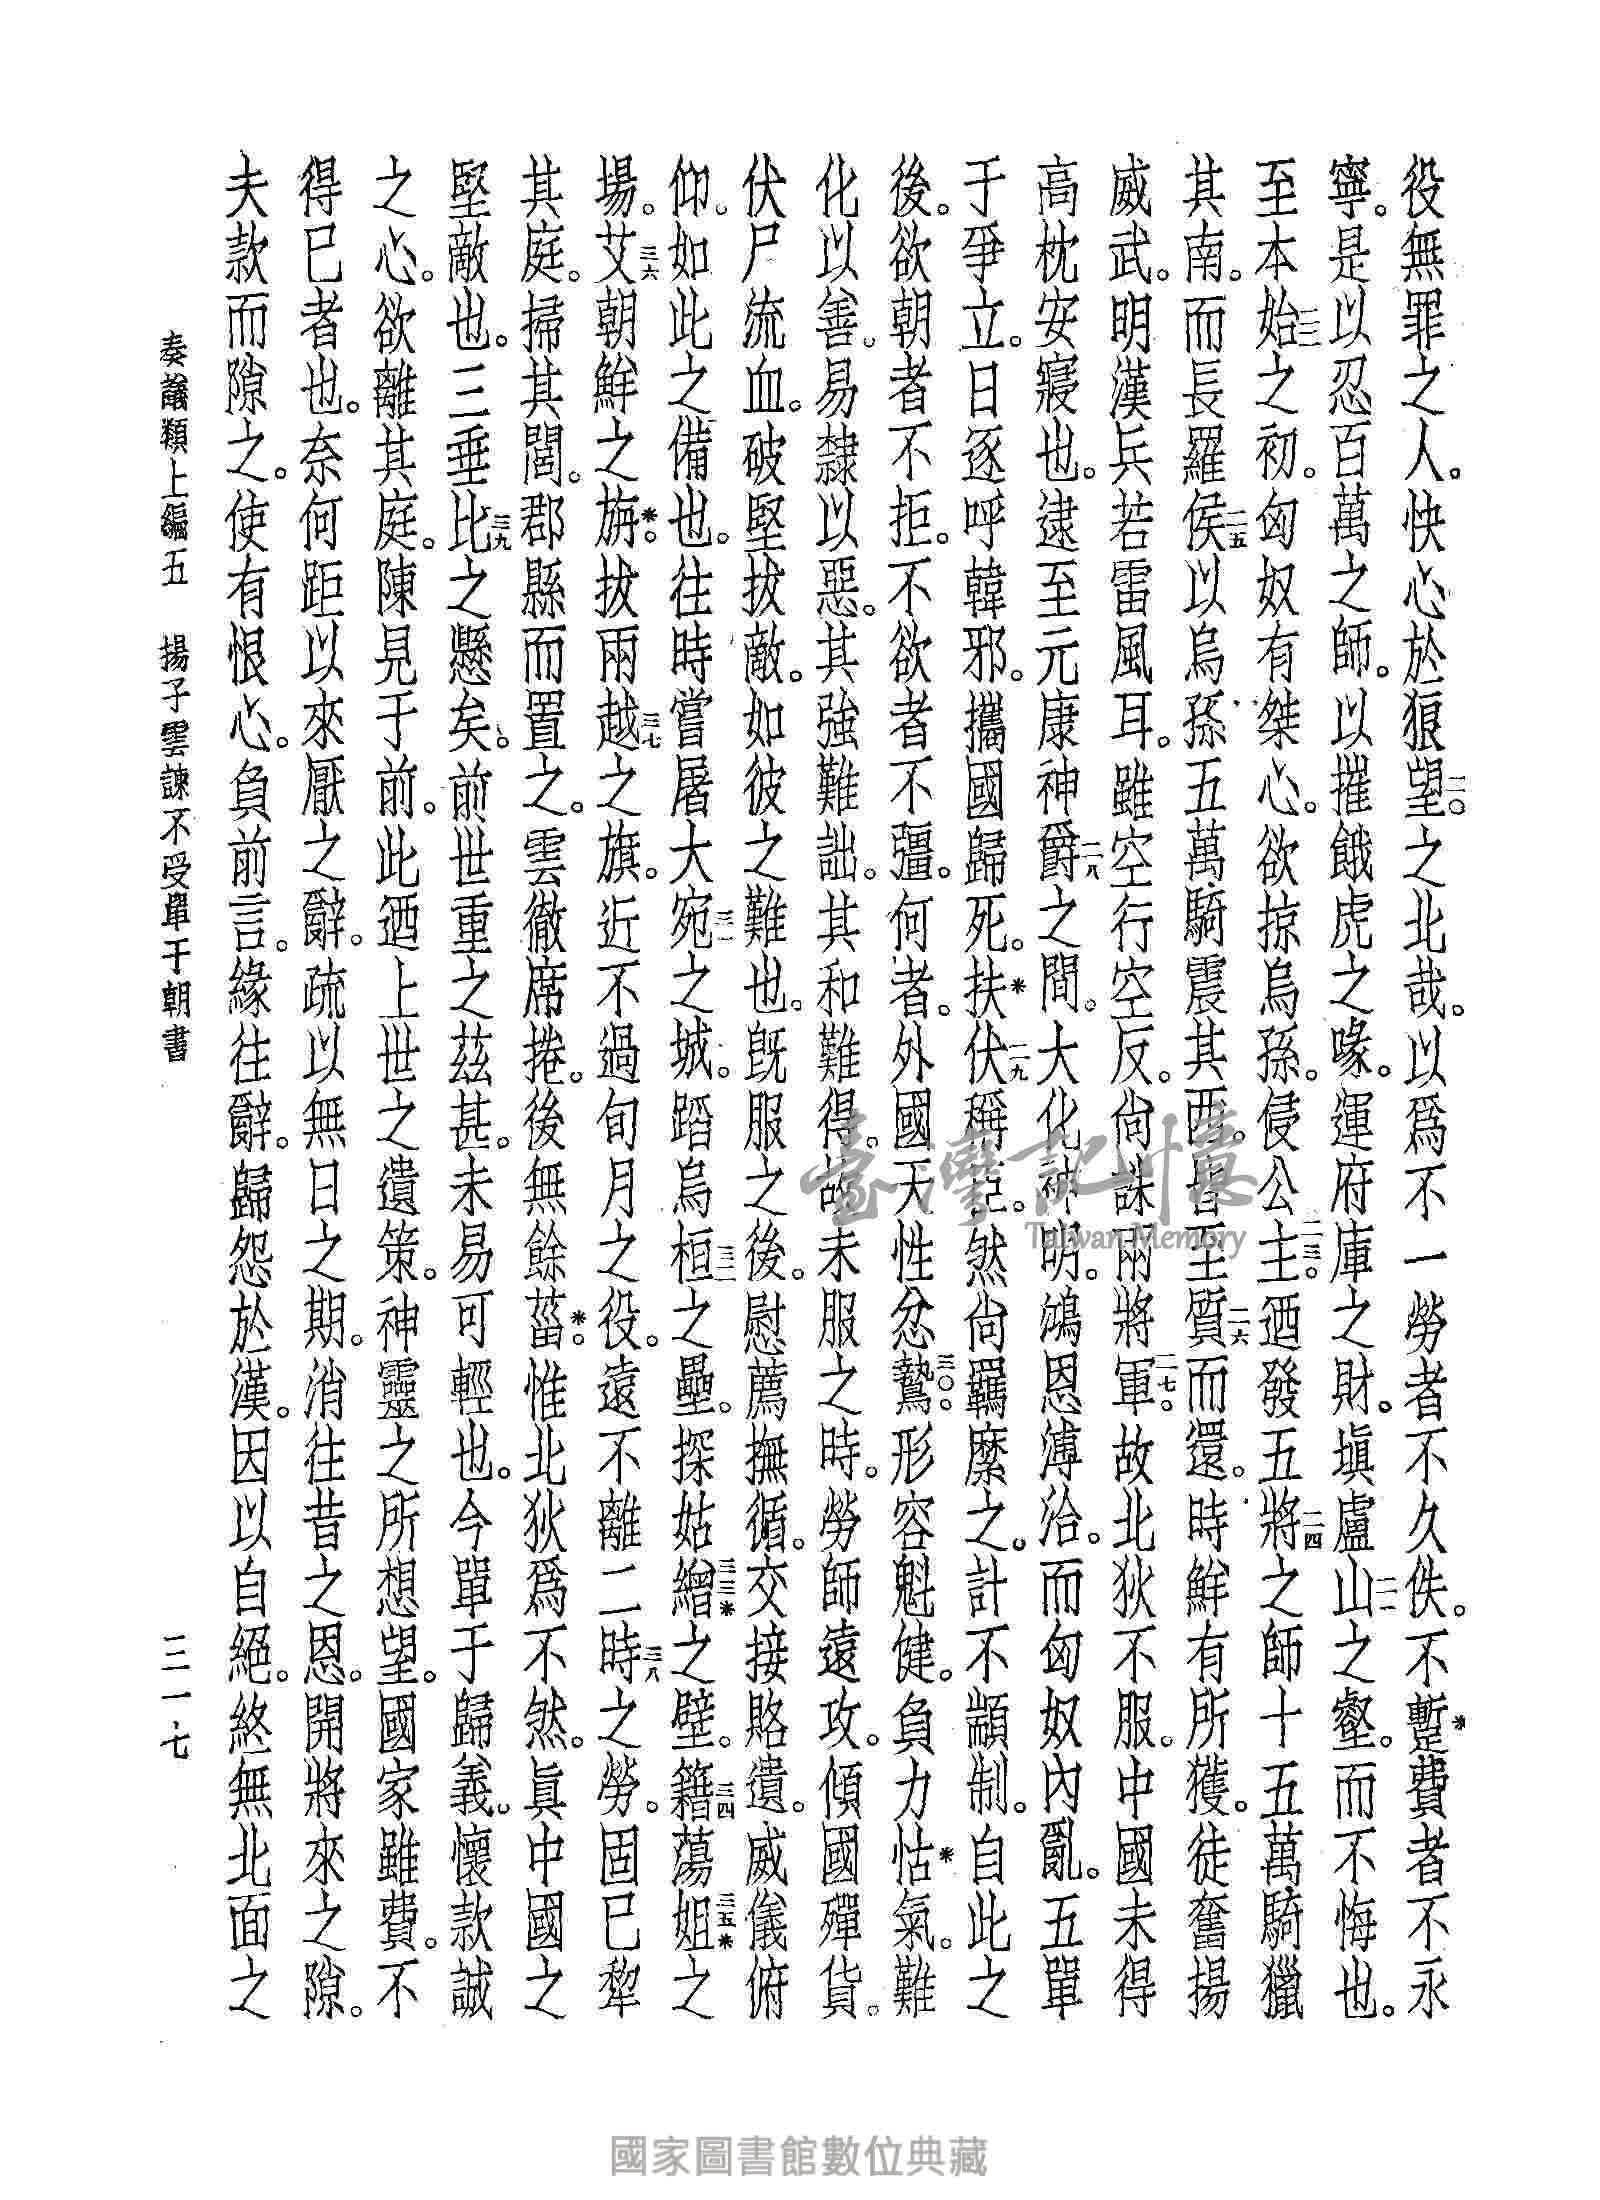 役無罪之人。快心於狼望二〇。之北哉。以爲不一勞者不久佚。不蹔*費者不永
寧。是以忍百萬之師。以摧餓虎之喙。運府庫之財。塡盧山二一之壑。而不悔也。
至本始二二之初。匈奴有桀心。欲掠烏孫。侵公主二三。迺發五將二四之師十五萬騎獵
其南。而長羅侯二五以烏孫五萬騎震其西。皆至質二六而還。時鮮有所獲。徒奮揚
威武。明漢兵若雷風耳。雖空行空反。尙誅兩將軍二七。故北狄不服。中國未得
高枕安寢也。逮至元康神爵二八之間。大化神明。鴻恩溥洽。而匈奴內亂。五單
于爭立。日逐呼韓邪。攜國歸死。扶*伏二九稱臣。然尙羈縻之。計不顓制。自此之
後。欲朝者不拒。不欲者不彊。何者。外國天性忿鷙三〇。形容魁健。負力怙*氣。難
化以善。易隸以惡。其強難詘。其和難得。故未服之時。勞師遠攻。傾國殫貨。
伏尸流血。破堅拔敵。如彼之難也。旣服之後。慰薦撫循。交接賂遺。威儀俯
仰。如此之備也。往時嘗屠大宛三一之城。蹈烏桓三二之壘。探姑繒三三*之壁。籍三四蕩姐三五*之
場。艾三六朝鮮之旃*。拔兩越三七之旗。近不過旬月之役。遠不離二時三八之勞。固已犂
其庭。掃其閭。郡縣而置之。雲徹席捲。後無餘菑*。惟北狄爲不然。眞中國之
堅敵也。三垂比三九之懸矣。前世重之茲甚。未易可輕也。今單于歸義。懷款誠
之心。欲離其庭。陳見于前。此迺上世之遺策。神靈之所想望。國家雖費。不
得已者也。奈何距以來厭之辭。疏以無日之期。消往昔之恩。開將來之隙。
夫款而隙之。使有恨心。負前言。緣往辭。歸怨於漢。因以自絕。終無北面之
奏議類上編五　揚子雲諫不受單于朝書
三一七
臺灣記憶
Taiwan Memory
國家圖書館數位典藏